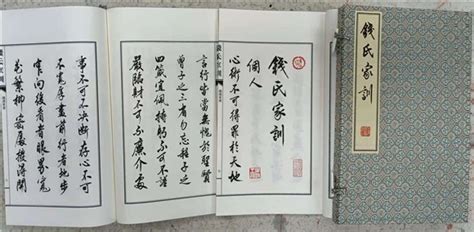 錢氏家訓
錢氏家訓
個人
心術不可得罪於天地
言行皆當無愧於聖賢
曾子之三省勿忘程子之
四箴宜佩持躬不可不謹
嚴臨財不可不廉介處
事不可不決斷存心不可
不寬厚盡前行者地步
窄向後看者眼界寬
花繁柳密處撥得開